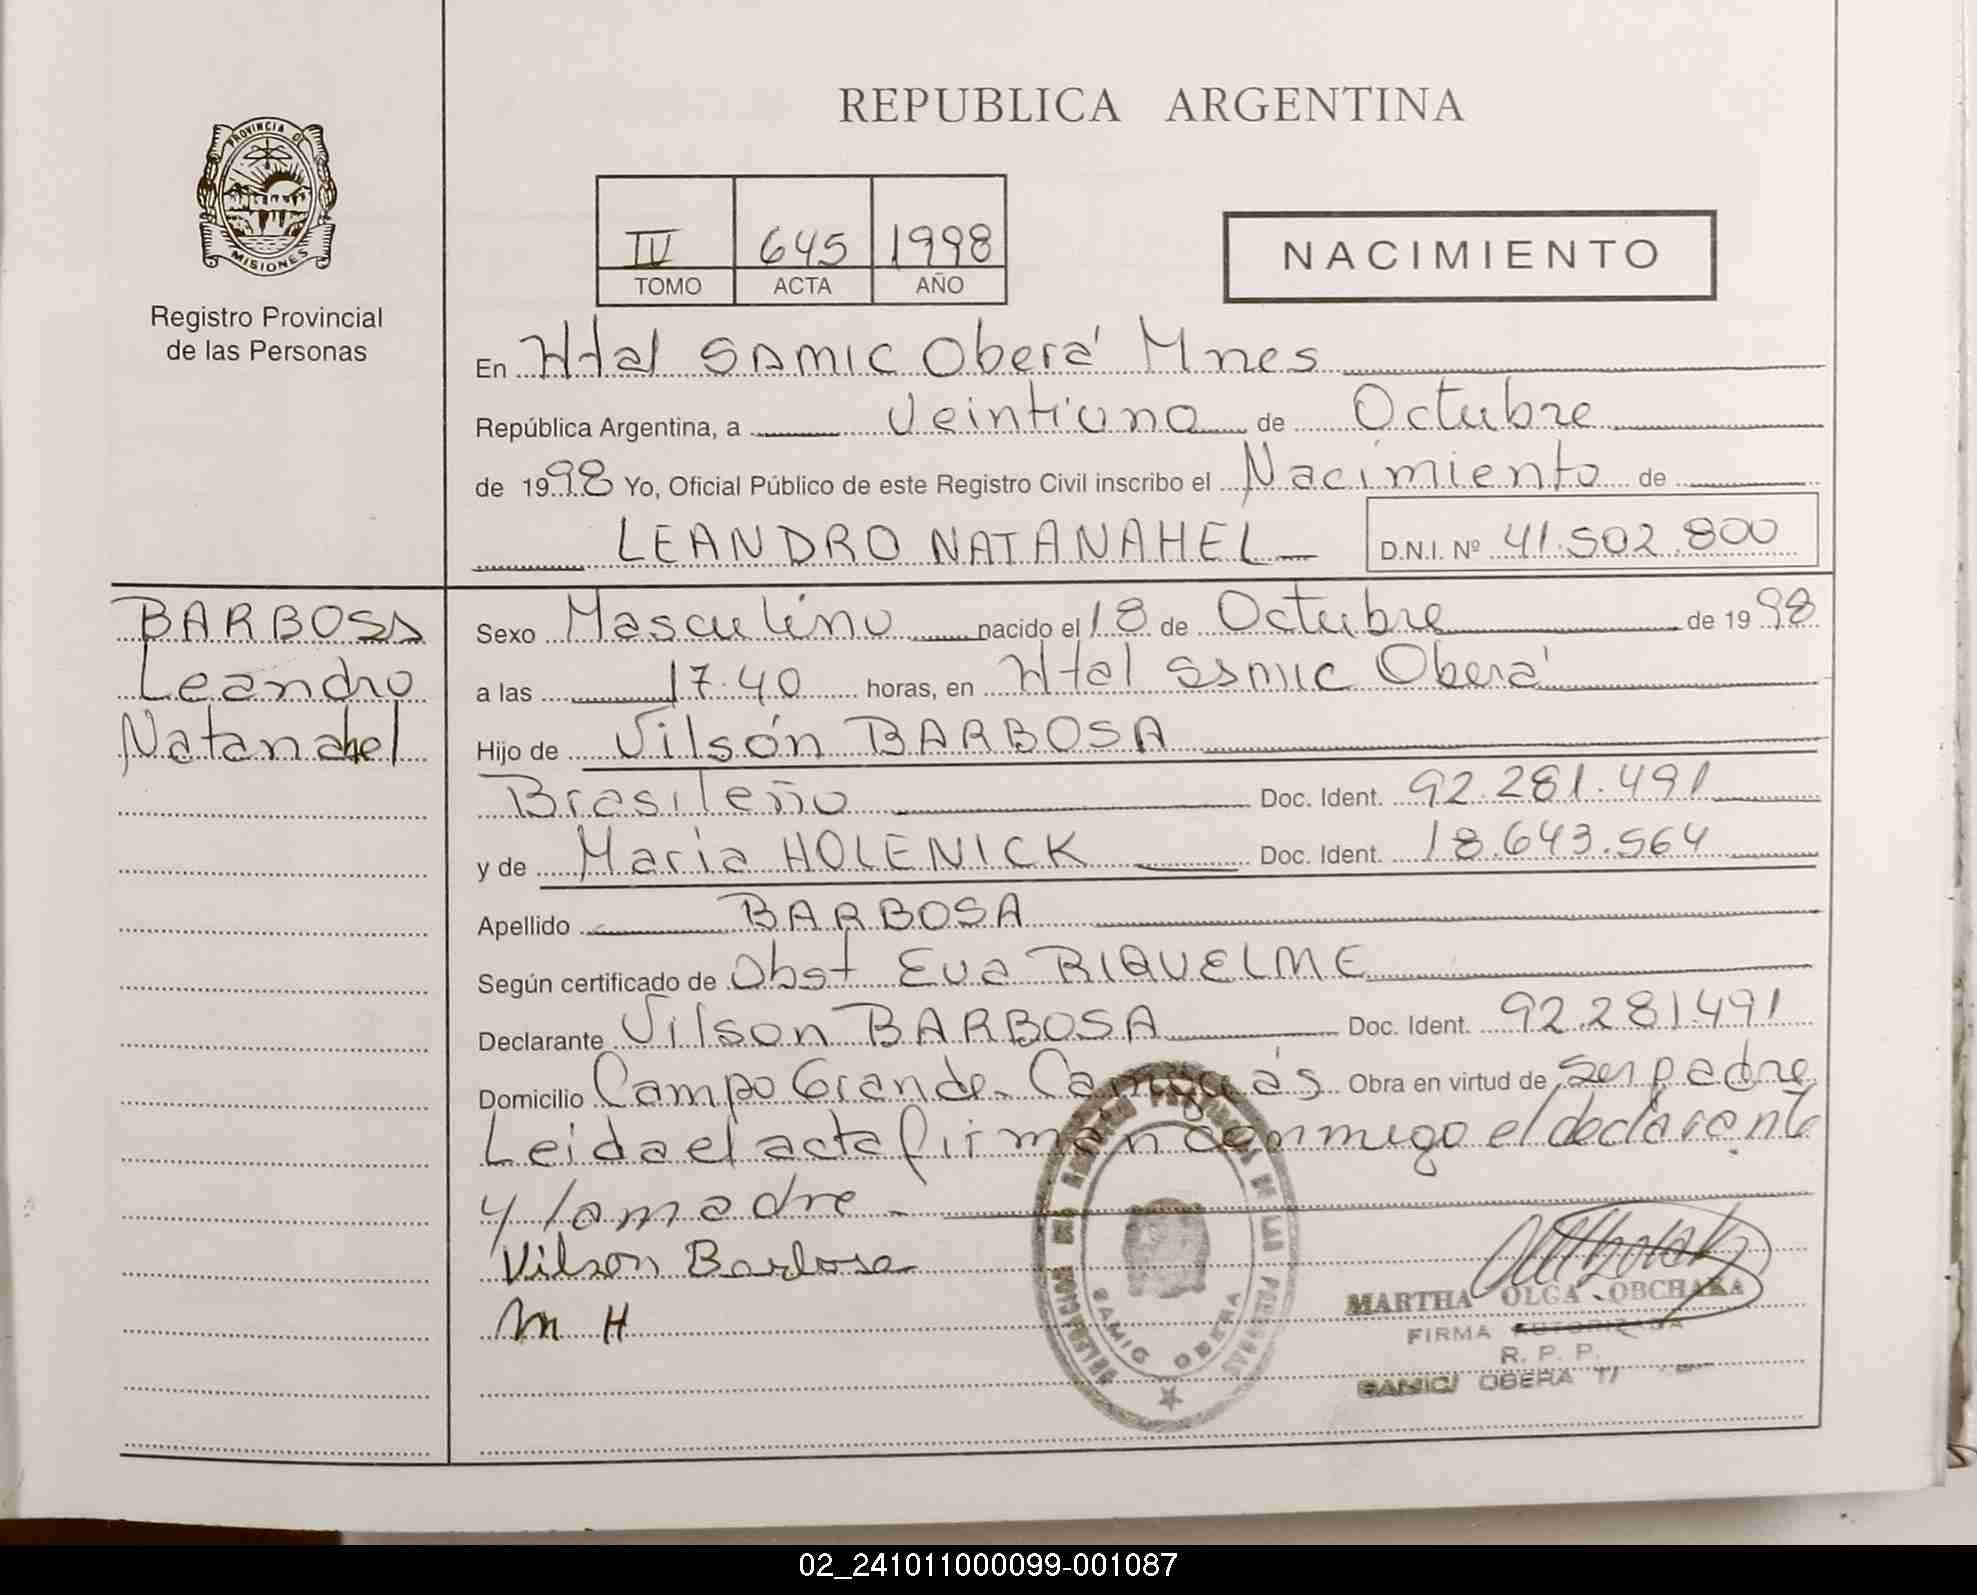 REPUBLICA ARGENTINA
PROVINCIA DE
MISIONES
Registro Provincial
de las Personas
IV 645 1998
TOMO ACTA AÑO
NACIMIENTO
En Htal SAMIC Oberá Mnes
República Argentina, a veintiuno de Octubre
de 1998 Yo, Oficial Público de este Registro Civil inscribo el Nacimiento de
LEANDRO NATANAHEL D.N.I. Nº 41.502.800
BARBOSA
Leandro
Natanahel
Sexo Masculino nacido el 18 de Octubre de 1998
a las 17.40 horas, en Htal SAMIC Oberá
Hijo de Vilsón BARBOSA
Brasileño Doc. Ident. 92.281.491
y de Maria HOLENICK Doc. Ident. 18.643.564
Apellido BARBOSA
Según certificado de Obst Eva RIQUELME
Declarante Vilson BARBOSA Doc. Ident. 92.281491
Domicilio Campo Grande. Cainguás Obra en virtud de ser padre
Leida el acta firman conmigo el declarante
y la madre -
Vilson Barbosa
M H
SAMIC OBERA
MARTHA OLGA OBCHAKA
FIRMA AUTORIZADA
R. P. P.
SAMIC OBERA
02_241011000099-001087